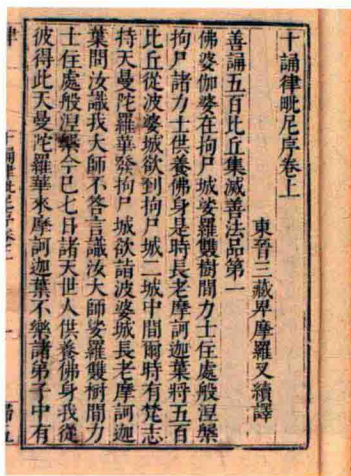 十誦律毗尼序卷上
東晉三藏卑摩羅叉續譯
善誦五百比丘集滅善法品第一
佛婆伽婆在拘尸城娑羅雙樹間力士住處般涅槃
拘尸諸力士供養佛身是時長老摩訶迦葉將五百
比丘從波婆城欲到拘尸城二城中間爾時有梵志
持天曼陀羅華發拘尸城欲詣波婆城長老摩訶迦
葉問汝識我大師不答言識汝大師娑羅雙樹間力
士住處般涅槃今已七日諸天世人供養佛身我從
彼得此天曼陀羅華來摩訶迦葉不樂諸弟子中有
十誦律毗尼序卷上